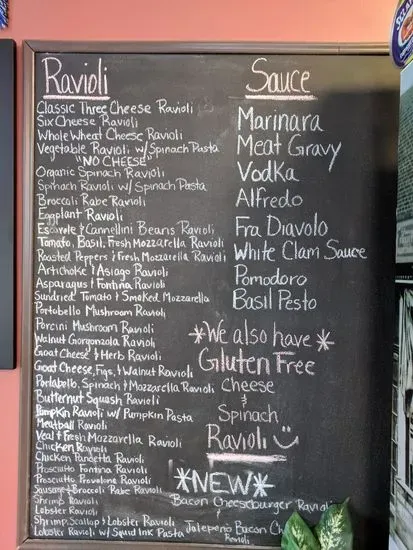 Ravioli
Classic Three Cheese Ravioli
Six Cheese Ravioli
Whole Wheat Cheese Ravioli
Vegetable Ravioli w/Spinach Pasta
"NO CHEESE"
Organic Spinach Ravioli
Spinach Ravioli w/Spinach Pasta
Broccoli Rabe Ravioli
Eggplant Ravioli
Escarole & Cannellini Beans Ravioli
Tomato, Basil, Fresh Mozzarella Ravioli
Roasted Peppers & Fresh Mozzarella Ravioli
Artichoke & Asiago Ravioli
Asparagus & Fontina Ravioli
Sundried Tomato & Smoked Mozzarella
Portobello Mushroom Ravioli
Porcini Mushroom Ravioli
Walnut Gorgonzola Ravioli
Goat Cheese & Herb Ravioli
Goat Cheese, Figs, & Walnut Ravioli
Portabello, Spinach & Mozzarella Ravioli
Butternut Squash Ravioli
Pumpkin Ravioli w/ Pumpkin Pasta
Meatball Ravioli
Veal & Fresh Mozzarella Ravioli
Chicken Ravioli
Chicken Pancetta Ravioli
Prosciutto Fontina Ravioli
Prosciutto Provolone Ravioli
Sausage & Broccoli Rabe Ravioli
Shrimp Ravioli
Lobster Ravioli
Shrimp, Scallop & Lobster Ravioli
Lobster Ravioli w/ Squid Ink Pasta
Sauce
Marinara
Meat Gravy
Vodka
Alfredo
Fra Diavolo
White Clam Sauce
Pomodoro
Basil Pesto
*We also have*
Gluten Free
Cheese
&
Spinach
Ravioli
*NEW*
Bacon Cheeseburger Ravioli
&
Jalapeno Bacon
Ravioli